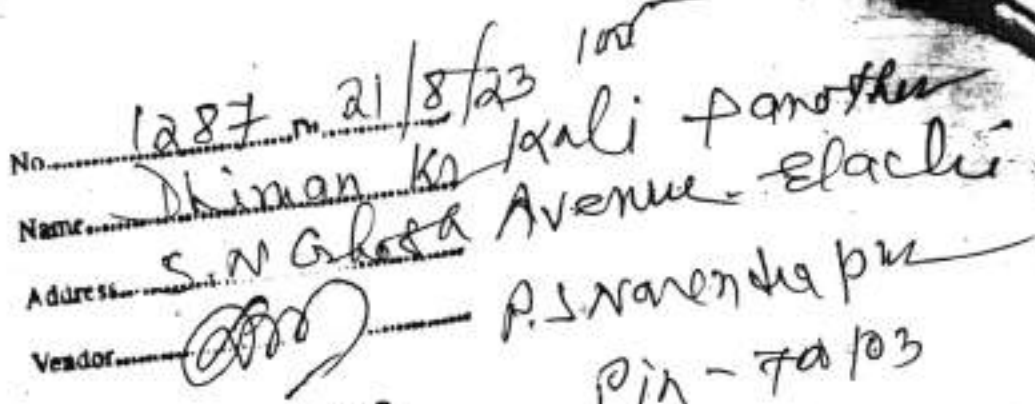 No. 1287 Dt. 21/8/23 100/-
Name Dhiman Kr Kali & another
Address S.N Ghosh Avenue Elachi
Vendor P.S Narendrapur
Pin - 700103